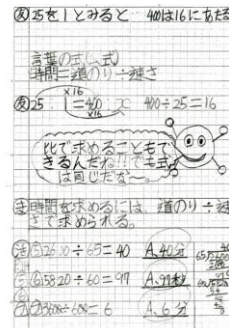 友 25を1とみると 400は16にあたる
言葉の式(公式)
時間=道のり÷速さ
×16
友 25:1=400:x 400÷25=16
×16
比で求めることもで
きるんだね!!でも式
は同じだな〜。
ま 時間を求めるには、道のり÷速
さで求められる。
⑤2600÷65=40 A,40分
⑥5820÷60=97 A,97秒
=6 A,6分